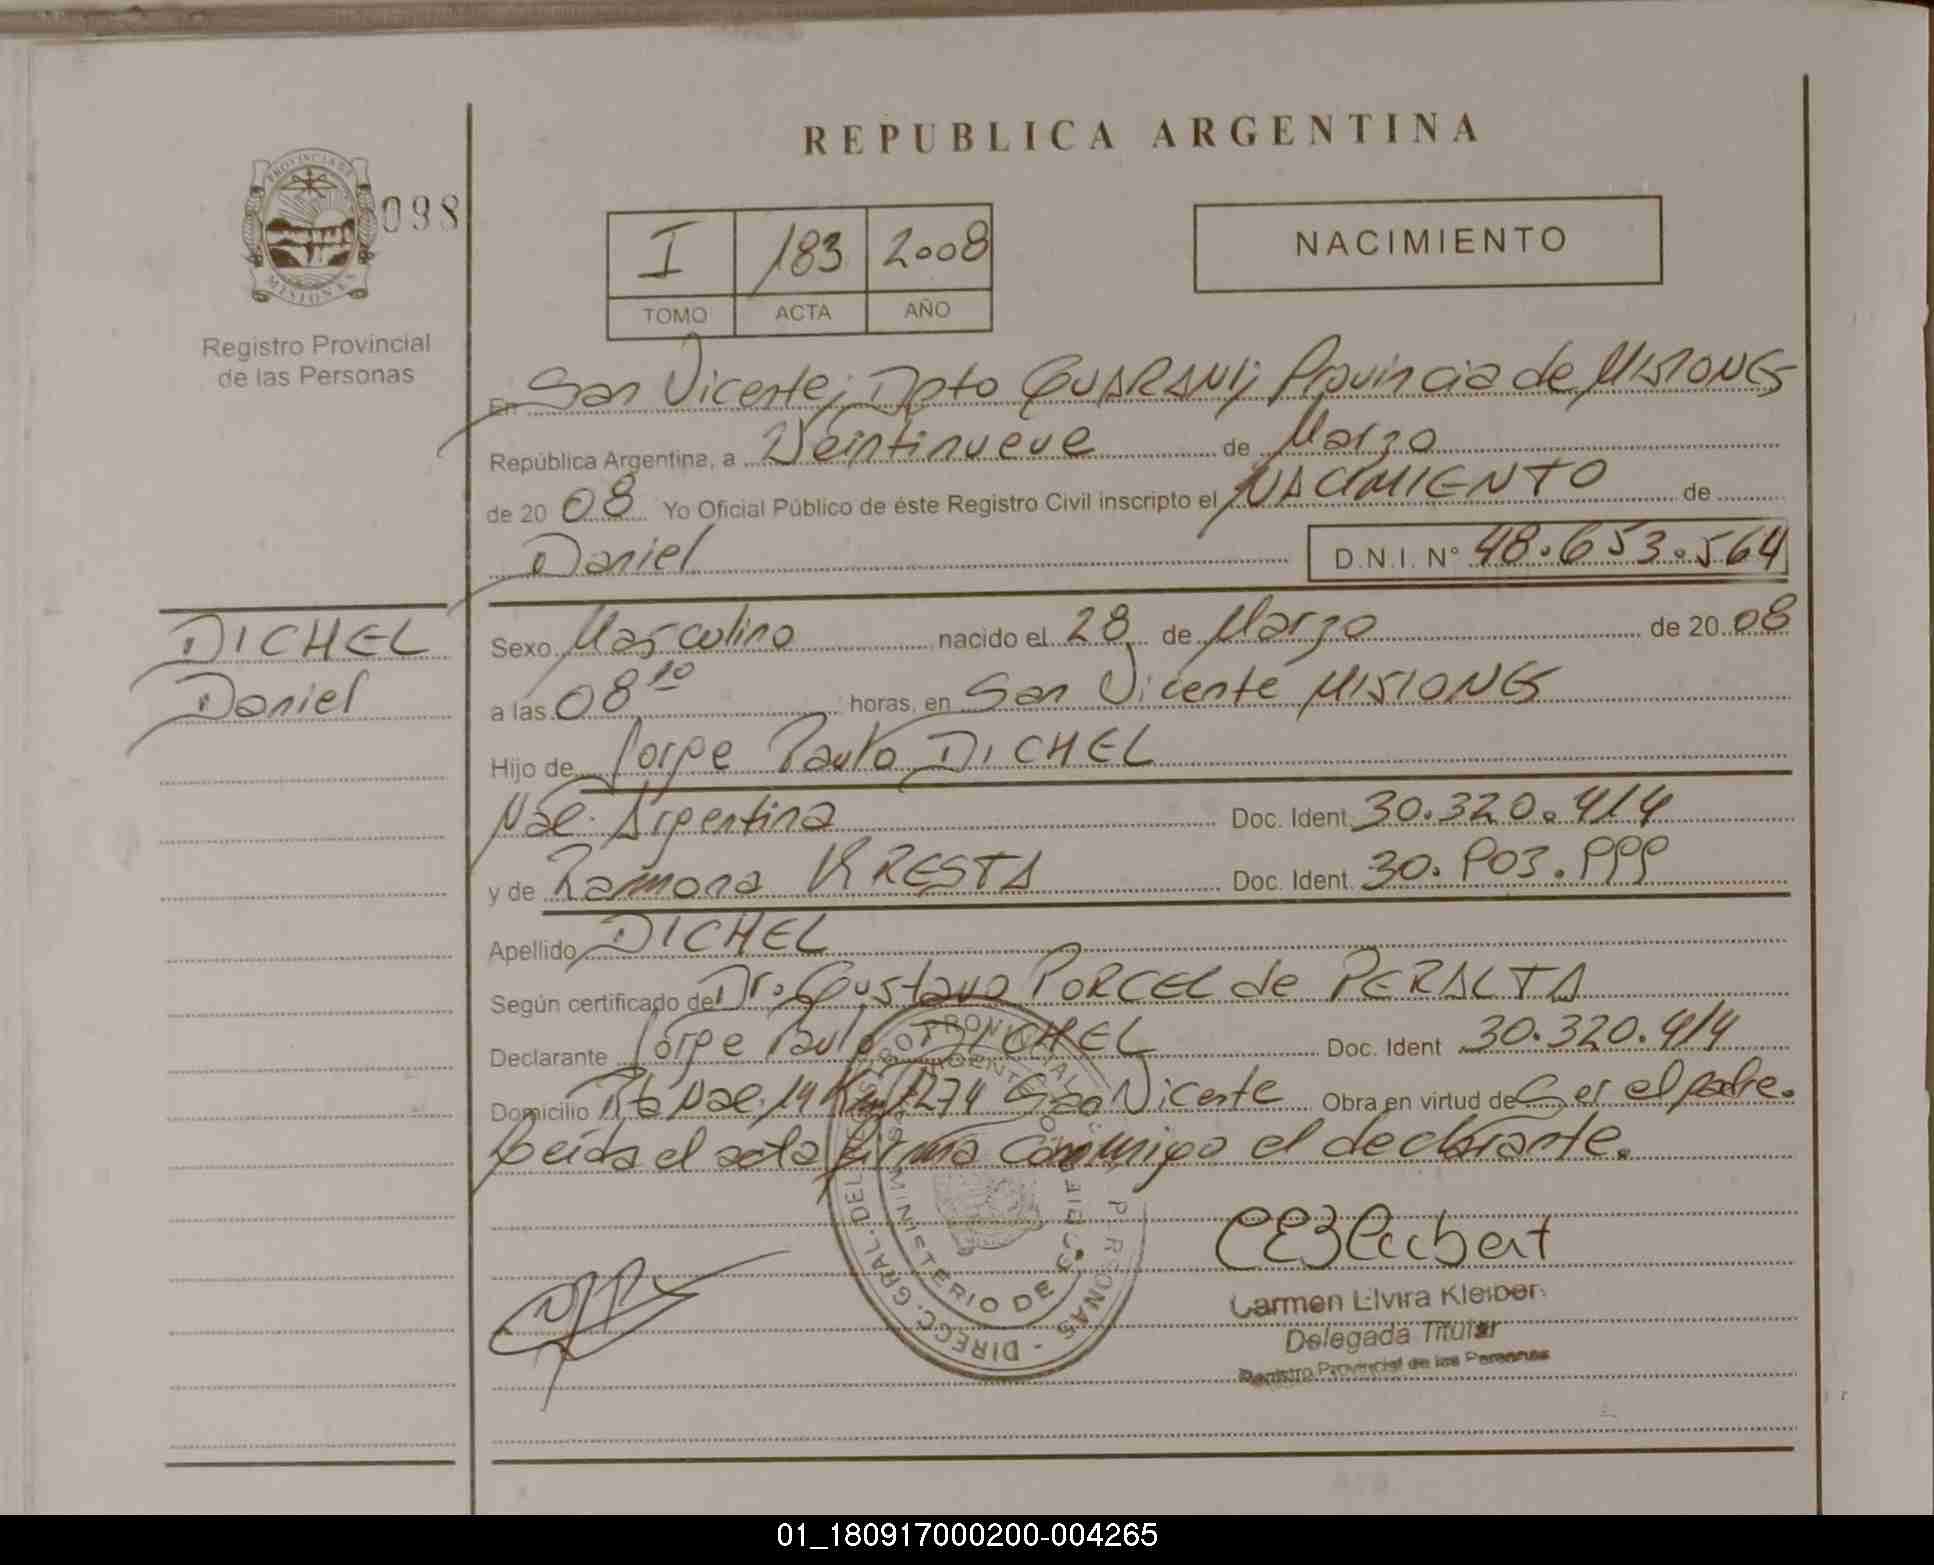 REPUBLICA ARGENTINA
PROVINCIA DE
MISIONES
098
Registro Provincial
de las Personas
I 183 2008
TOMO ACTA AÑO
NACIMIENTO
En San Vicente; Dpto GUARANI; Provincia de MISIONES
República Argentina, a Veintinueve de Marzo
de 20 08 Yo Oficial Público de éste Registro Civil inscripto el NACIMIENTO de
Daniel D.N.I. N° 48.653.564
DICHEL
Daniel
Sexo Masculino nacido el 28 de Marzo de 20 08
a las 08 10 horas, en San Vicente MISIONES
Hijo de Jorge Paulo DICHEL
Nac. Argentina Doc. Ident. 30.320.414
y de Ramona KRESTA Doc. Ident. 30.903.999
Apellido DICHEL
Según certificado de Dr. Gustavo PORCEL de PERALTA
Declarante Jorge Paulo DICHEL Doc. Ident 30.320.414
Domicilio Rta Nac. 14 Km 1274 San Vicente Obra en virtud de Ser el padre.
Leida el acta firma conmigo el declarante.
DIRECC. GRAL. DEL PERSONAS
MINISTERIO DE
Carmen Elvira Kleiber
Delegada Titular
Registro Provincial de las Personas
01_180917000200-004265